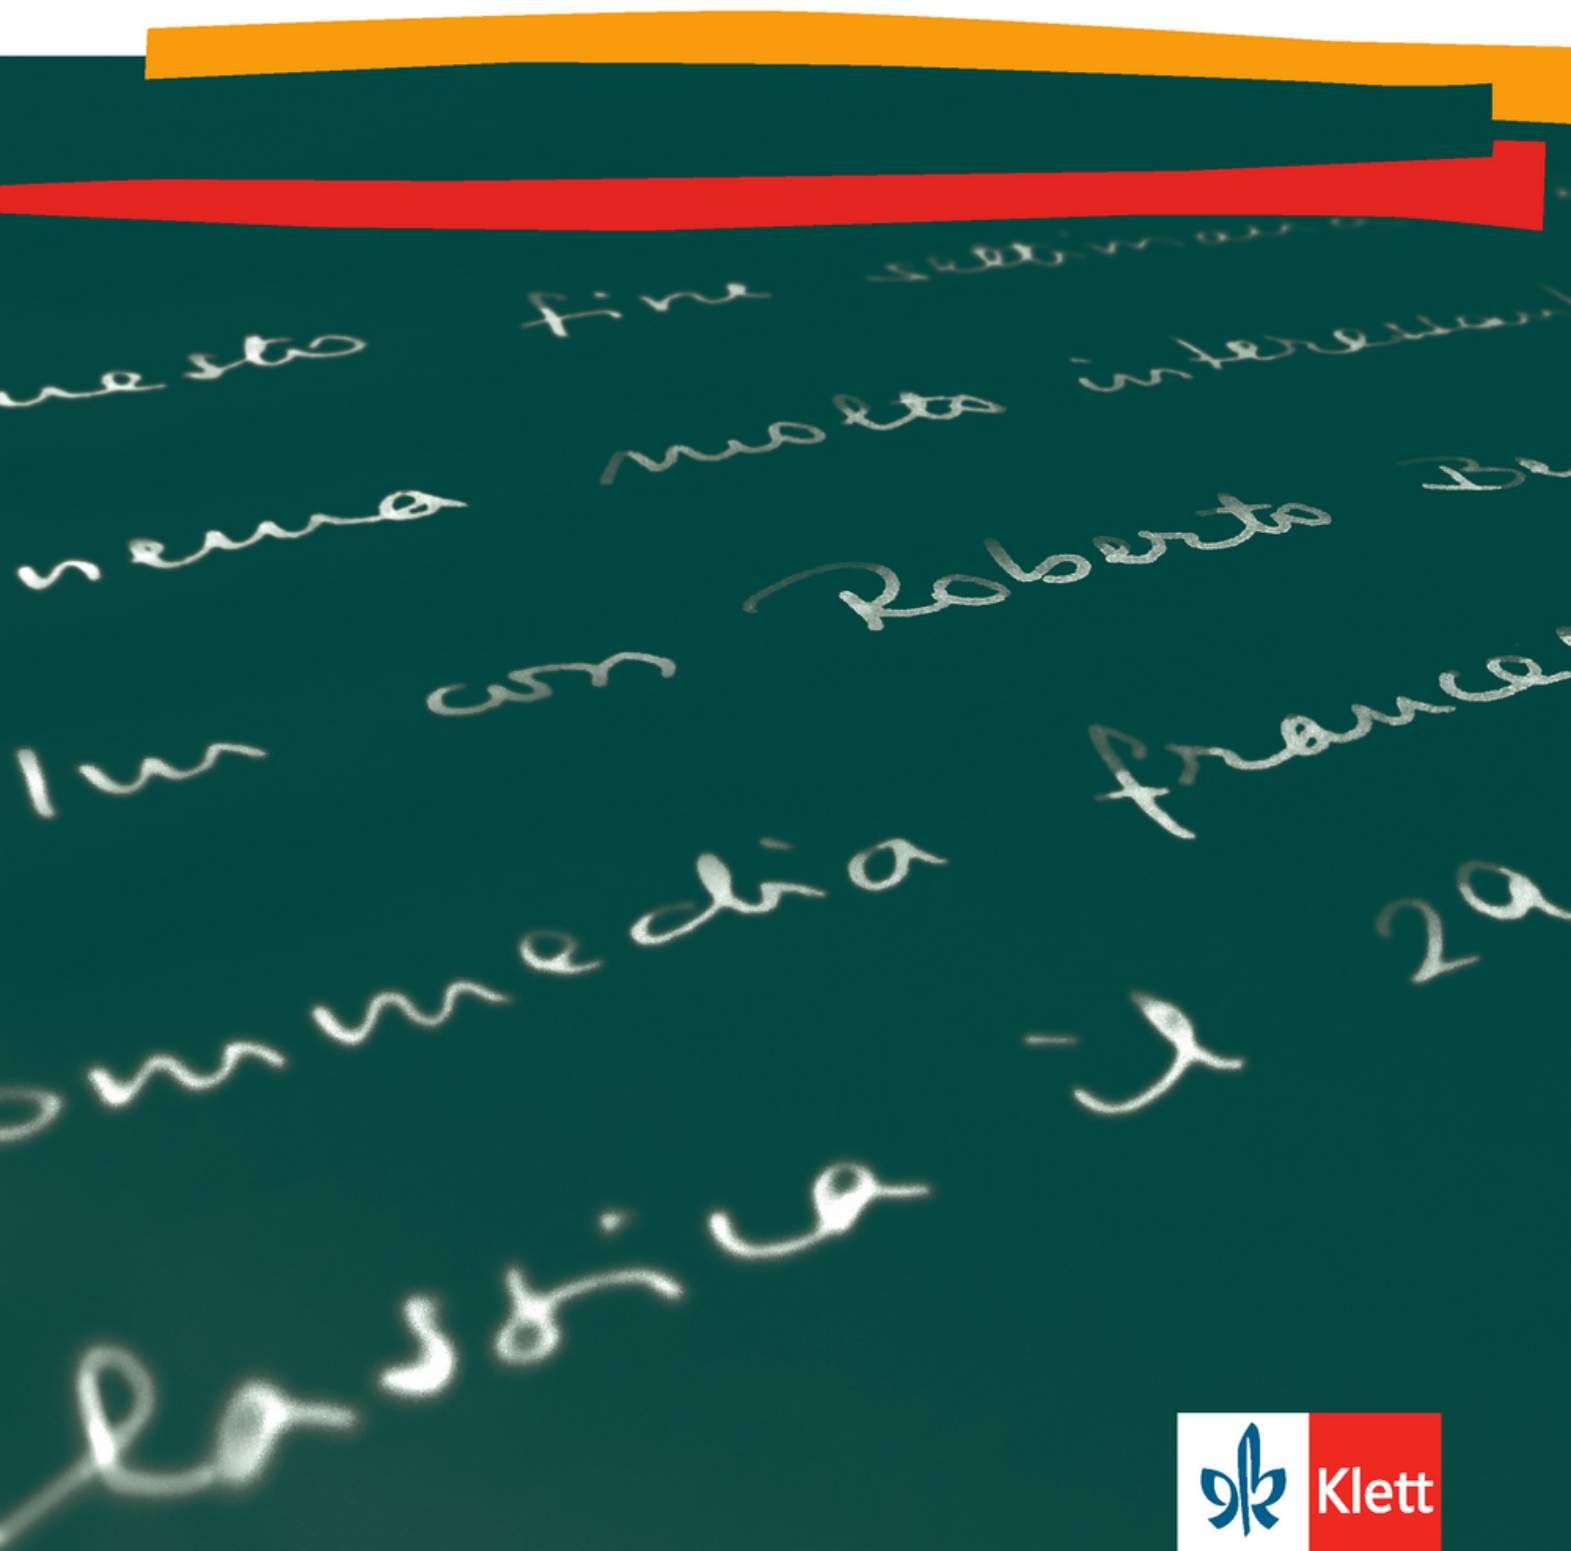 uesto fine settimana
nema molto interessant
1 un con Roberto Be
ommedia france
lassica - y 2a
Klett